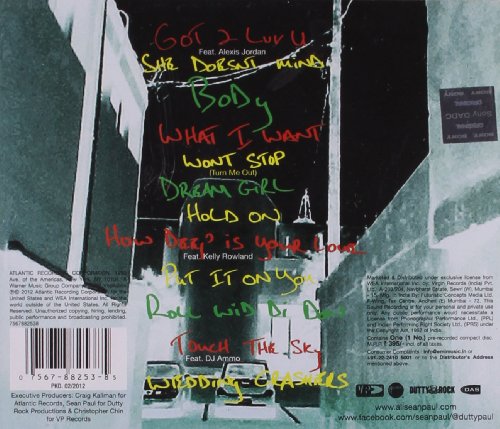 GOT 2 LUV U
Feat. Alexis Jordan
SHE DOESNT MIND
BODY
WHAT I WANT
WONT STOP
(Turn Me Out)
DREAM GIRL
HOLD ON
HOW DEEP IS YOUR LOVE
Feat. Kelly Rowland
PUT IT ON YOU
ROLL WID DI DON
TOUCH THE SKY
Feat. DJ Ammo
WEDDING CRASHERS
SONY
ORIGINAL
Sony DADC
ATLANTIC RECORDING CORPORATION, 1290
Ave. of the Americas, New York, NY 10104. A
Warner Music Group Company
2012 Atlantic Recording Corporation for the
United States and WEA International Inc. for the
world outside of the United States. All Rights
Reserved. Unauthorized copying, hiring, lending,
public performance and broadcasting prohibited.
7567882538
0 75678 82538 5
PKD. 02/2012
Executive Producers: Craig Kallman for
Atlantic Records, Sean Paul for Dutty
Rock Productions & Christopher Chin
for VP Records
Marketed & Distributed under exclusive license from
WEA International Inc. by Virgin Records (India) Pvt.
This Sound Recording is for your personal and private use
only. Any public performance would necessitate a
License from Phonographic Performance Ltd., (PPL)
and Indian Performing Right Society Ltd., (IPRS) under
the Copyright Act, 1957 of India.
Contains One (1 No.) pre-recorded compact disc.
M.R.P. 395/- incl. of all taxes.
Consumer Complaints : info@emimusic.in
or refer to the Distributor's Address
mentioned above.
VP
DUTTY ROCK
DAS
www.allseanpaul.com
www.facebook.com/seanpaul @duttypaul